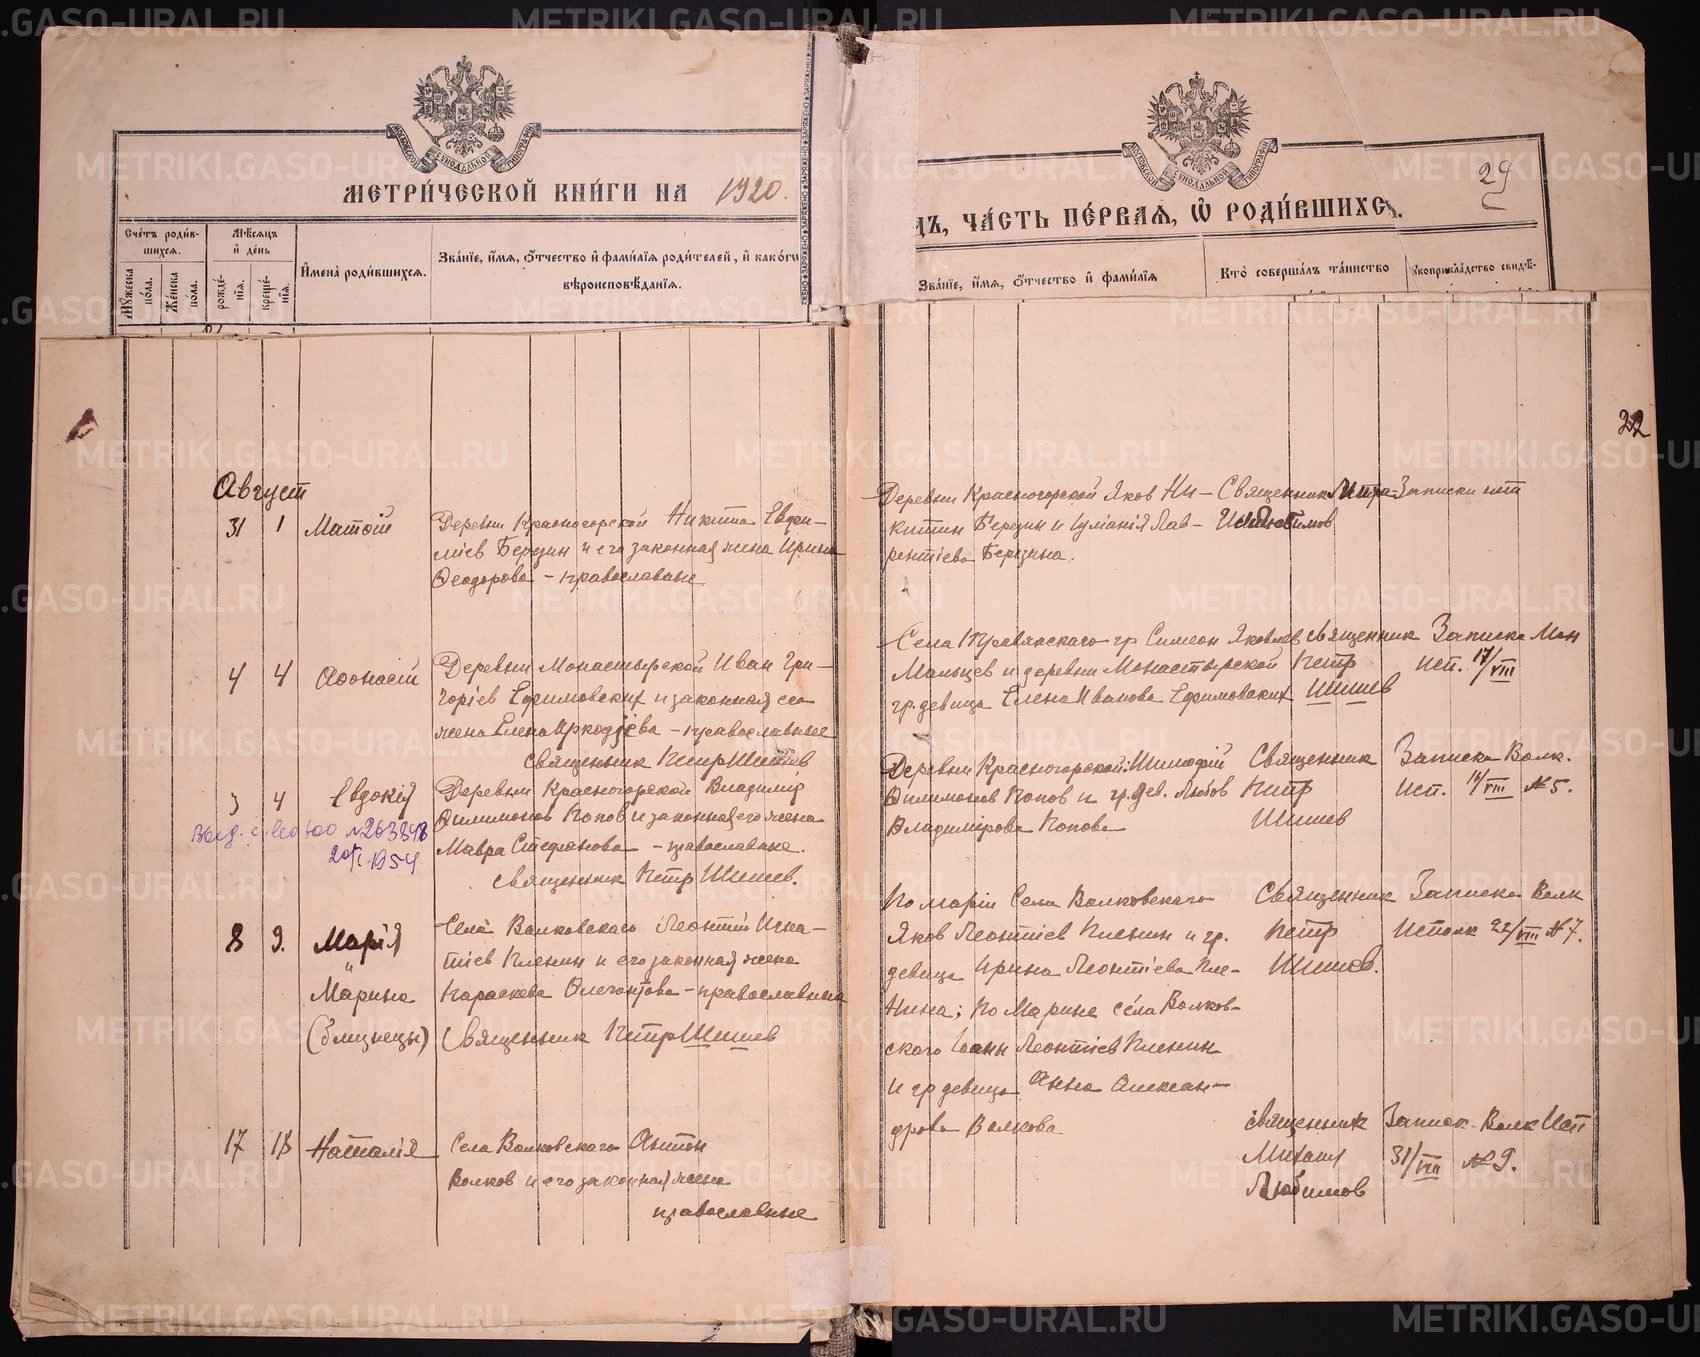 МЕТРИ́ЧЕСКОЙ КНИ́ГИ НА 1920.
Сче́тъ роди́в-
шихся.
Му́жеска по́ла.
Же́нска по́ла.
Мѣ́сяцъ
и҆ де́нь
рожде́-
нїѧ.
креще́-
нїѧ.
И҆мена̀ роди́вшихся.
Зва́нїе, и҆́мѧ, ѻ҆́тчество и҆ фами́лїѧ роди́телей, и҆ како́гѡ
вѣроисповѣ́данїѧ.
Август
31 1 Матѳій
Деревни Красногорской Никита Евфи-
міев Березин и его законная жена Ирина
Ѳеодорова - православные.
4 4 Аѳонасій
Деревни Монастырской Иван Гри-
горіев Ефимовских и законная его
жена Елена Аркадіева - православные
Священник Петр Шишев
3 4 Евдокія
Деревни Красногорской Владимір
Филимонов Попов и законная его жена
Мавра Стефанова - православные.
Священник Петр Шишев.
№ 263848
1954
8 9. Марія
"
Марина
(близнецы)
Села Волковского Леонтій Игна-
тіев Пленин и его законная жена
Параскева - православные
Священник Петр Шишев
17 18 Наталія
Села Волковского Антон
Волков и его законная жена
православные
29
ДЪ, ЧА́СТЬ ПЕ́РВАЯ, Ѽ РОДИ́ВШИХСЯ.
Зва́нїе, и҆́мѧ, ѻ҆́тчество и҆ фами́лїѧ
Кто̀ соверша́лъ та́инство
Рꙋкоприкла́дство свидѣ́-
22
Деревни Красногорской Яков Ни-
китин Березин и Іуліанія Лав-
рентіева Березина.
Священник
Села Травянского гр Симеон Яковлев
Мальцев и деревни Монастырской
гр. девица Елена Иванова Ефимовских
Священник
Петр
Шишев
Записка Мон
исп. 17/VIII
Деревни Красногорской: Тимофій
Филимонов Попов и гр. дев. Любов
Владимірова Попова
Священник
Петр
Шишев
Записка Волк.
Исп. 14/VIII №5.
По маріи Села Волковского
Яков Леонтіев Пленин и гр.
девица Ирина Леонтіева Пле-
нина; По Марине села Волков-
ского Іоанн Леонтіев Пленин
и гр девица Анна Алексан-
дрова Волкова
Священник
Петр
Шишев.
Записка Волк
Исполк 22/VIII №7.
Священник
Михаил
Любимов
Записк. Волк Исп
31/VIII №9.